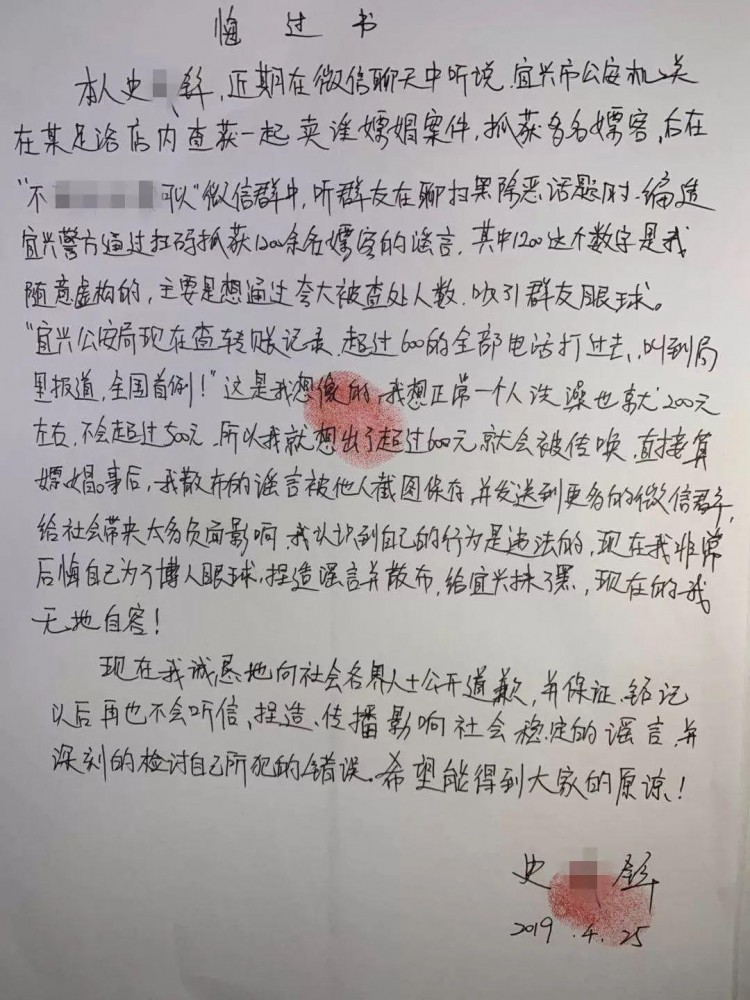 悔过书
本人史 锌,近期在微信聊天中听说,宜兴市公安机关
在某足浴店内查获一起卖淫嫖娼案件,抓获多名嫖客,后在
“不 可以”微信群中,听群友在聊扫黑除恶话题时,编造
宜兴警方通过扫码抓获1200余名嫖客的谣言,其中1200这个数字是我
随意虚构的,主要是想通过夸大被查处人数,吸引群友眼球。
“宜兴公安局现在查转账记录,超过600的全部电话打过去,叫到局
里报道,全国首例!”这是我想像的,我想正常一个人洗澡也就200元
左右,不会超过500元,所以我就想出了超过600元就会被传唤,直接算
嫖娼。事后,我散布的谣言被他人截图保存,并发送到更多的微信群,
给社会带来太多负面影响,我认识到自己的行为是违法的,现在我非常
后悔自己为了博人眼球,捏造谣言并散布,给宜兴抹了黑,现在的我
无地自容!
现在我诚恳地向社会各界人士公开道歉,并保证,铭记
以后再也不会听信、捏造、传播影响社会稳定的谣言,并
深刻的检讨自己所犯的错误。希望能得到大家的原谅!
史 锌
2019.4.25